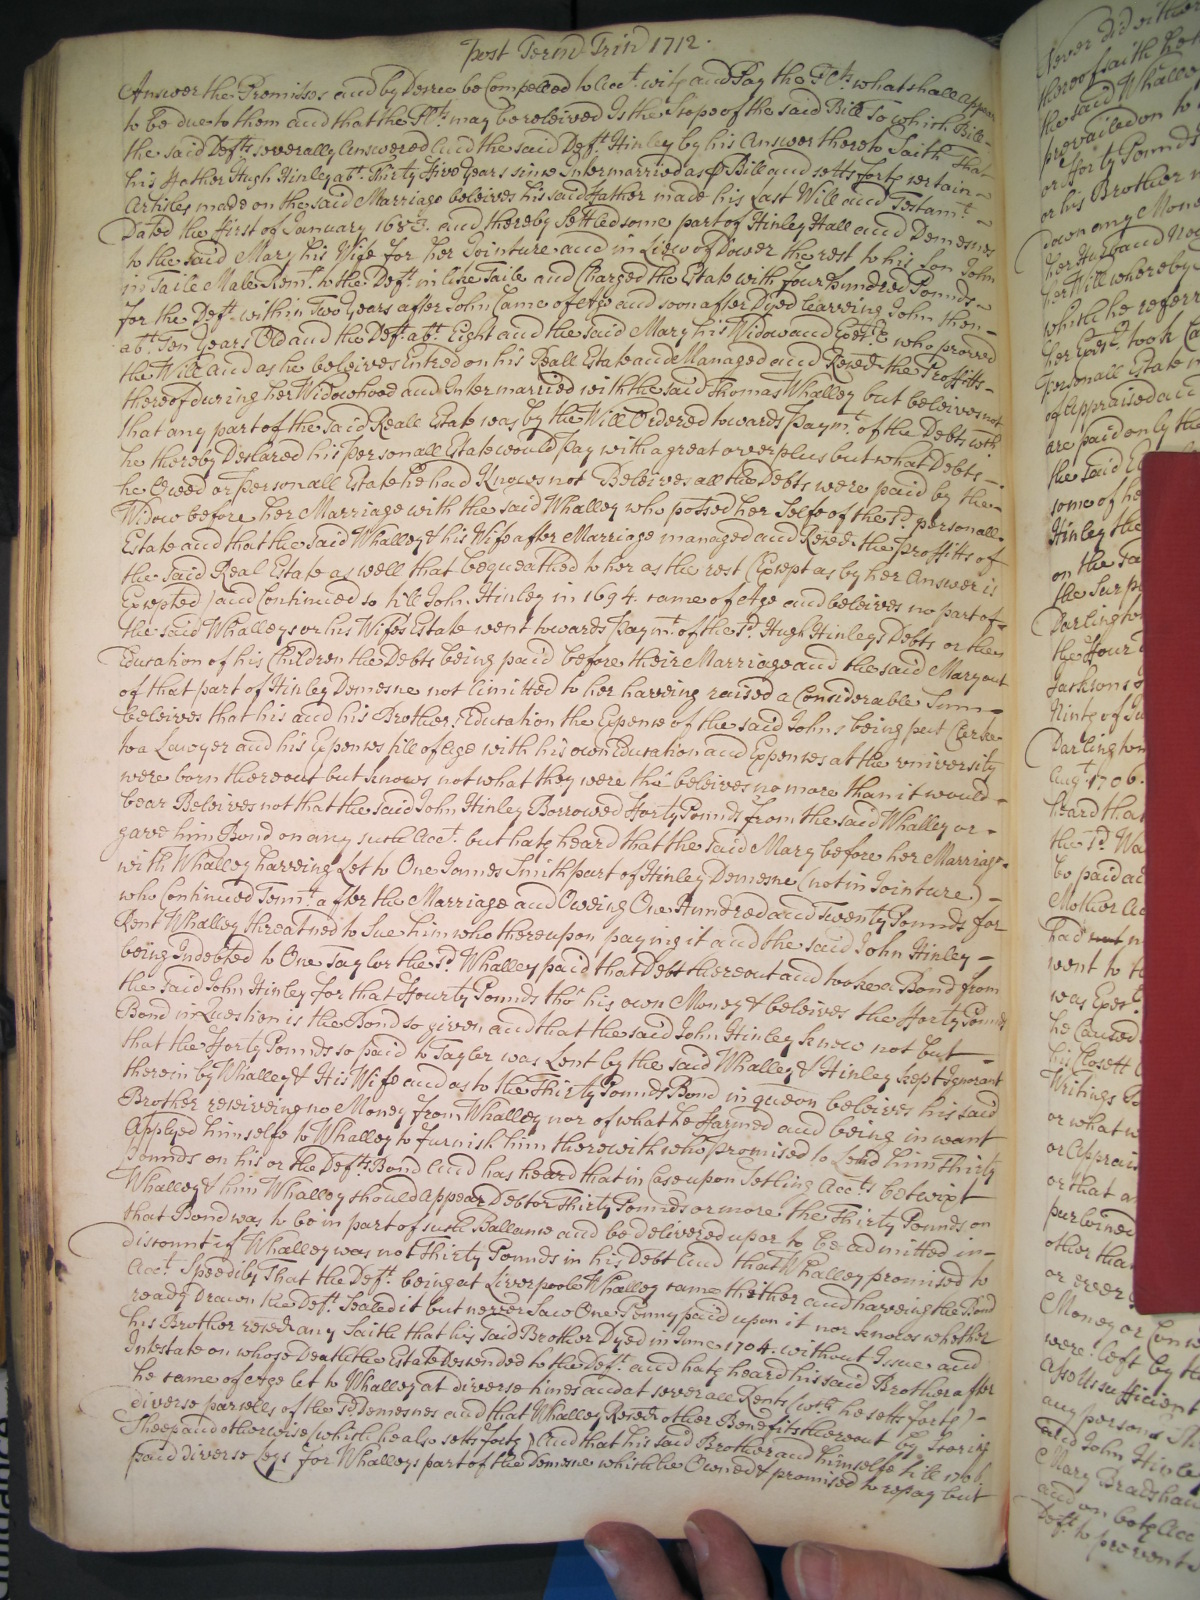 post Termd Trind 1712.
Answer the Premisses and by Decree be Compelled to Acct. with and Pay the Plts. what shall Appear
to be due to them and that the Plts. may be releived Is the Scope of the said Bill To which Bill
the said Defts severally Answered And the said Deft. Hinley by his Answer thereto Saith That
his Father Hugh Hinley abt. Thirty Five Years since Intermarried as p Bill and setts forth certain
Articles made on the said Marriage beleives his said Father made his Last Will and Testamt.
Dated the first of January 1683. and thereby Settled some part of Hinley Hall and Demesnes
to the said Mary his Wife for her Jointure and in Lieu of Dower the rest to his Son John
in Taile Male Remr. to the Deft. in like Taile and Charged the Estate with Four Hundred Pounds
for the Deft. within Two Years after John Came of Age and soon after Dyed leaveing John then
abt. Ten Years Old and the Deft. abt. Eight and the said Mary his Widow and Exectx. who proved
the Will and as he beleives Entred on his Reall Estate and Managed and Reced the Proffitts
thereof during her Widowhood and Intermarried with the said Thomas Whalley but beleives not
that any part of the said Reale Estate was by the Will Ordered towards paymt. of the Debts wch.
he thereby Declared his personall Estate would Pay with a great overplus but what Debts
he Owed or personall Estate he had Knows not Beleives all the Debts were paid by the
Widow before her Marriage with the said Whalley who possed her Selfe of the sd. personall
Estate and that the said Whalley & his Wife after Marriage managed and Reced the proffitts of
the said Real Estate as well that bequeathed to her as the rest (Except as by her Answer is
Excepted) and Continued so till John Hinley in 1694. came of Age and beleives no part of
the said Whalleys or his Wifes Estate went towards Paymt. of the sd. Hugh Hinleys Debts or the
Education of his Children the Debts being paid before their Marriage and the said Mary out
of that part of Hinley Demesne not limitted to her haveing raised a Considerable Summ
beleives that his and his Brothers Education the Expence of the said Johns being put Clerke
to a Lawyer and his Expences till of Age with his own Education and Expences at the University
were born thereout but knows not what they were tho' beleives no more than it would
bear Beleives not that the said John Hinley Borrowed Forty Pounds from the said Whalley or
gave him Bond on any such Acct. but hath heard that the said Mary before her Marriage
with Whalley haveing Let to One James Smith part of Hinley Demesne (not in Jointure)
who Continued Tennt. after the Marriage and Oweing One Hundred and Twenty Pounds for
Rent Whalley threatned to Sue him who thereupon paying it and the said John Hinley
being Indebted to One Taylor the sd. Whalley paid that Debt thereout and tooke a Bond from
the said John Hinley for that Fourty Pounds tho' his own Money & beleives the Forty Pounds
Bond in Question is the Bond so given and that the said John Hinley knew not but
that the Forty Pounds so paid to Tayler was Lent by the said Whalley & Hinley kept Ignorant
therein by Whalley & His Wife and as to the Thirty Pounds Bond in queon beleives his said
Brother receiveing no Money from Whalley nor of what he Farmed and being in want
Applyed himselfe to Whalley to furnish him therewith who promised to Lend him Thirty
Pounds on his or the Defts. Bond And has heard that in Case upon Setling Accts. betwixt
Whalley & him Whalley should Appear Debtor Thirty Pounds or more the Thirty Pounds on
that Bond was to be in part of such Ballance and be delivered up or to be admitted in
discount if Whalley was not Thirty Pounds in his Debt And that Whalley promised to
Acct. Speedily That the Deft. being at Liverpoole Whalley came thither and haveing the Bond
ready Drawn the Deft. Sealed it but never Saw One Penny paid upon it nor knows whether
his Brother reced any Saith that his said Brother Dyed in June 1704. without Issue and
Intestate on whose Death the Estate Descended to the Deft. and hath heard his said Brother after
he came of Age let to Whalley at diverse times and at severall Rents (wch. he setts forth)
diverse parcells of the sd. Demesnes and that Whalley Reced other Benefits thereout by
Sheep and otherwise (which he also setts forth) And that his said Brother and himselfe till 1706.
paid diverse Leys for Whalleys part of the Demesne which he Owned & promised to repay but
Never did either
thereof saith he
the said Whalley
prevailed on to
or Forty Pounds
or his Brother
down any Money
her Husband
her Will whereby
which he referrs
her Exects. took
personall Estate
of Appraised and
are paid only the
the said
some of her
Hinley the
on the
the Surp
Darlington
the Four
Jacksons
Darlington
Augt. 1706.
heard that
the sd.
be paid
Mother
had not
went to
was Exectx.
he Caused
his Closett
Writings
or what
or Apprais
or that
purloined
other than
or ever
Money or
were left by
Also Unsufficient
any person
said John Hinley
Mary Bradshaw
and on both Acc
Deft. to prevent